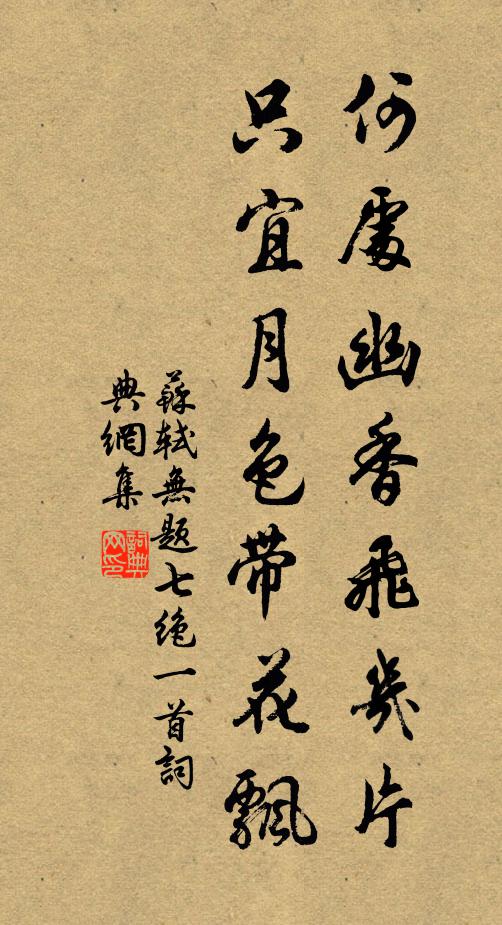 何處幽香飛幾片
只宜月色帶花飄
蘇軾無題七絕一首詞
典網集
詞典网印